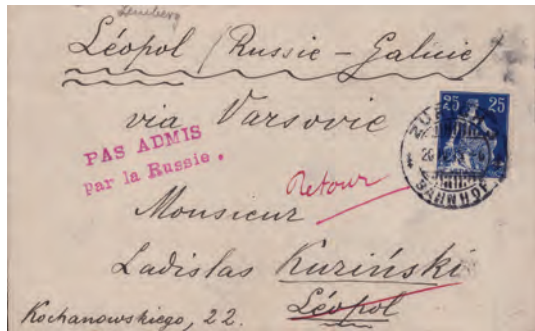 Lemberg
Léopol (Russie – Galicie)
via Varsovie
PAS ADMIS
par la Russie.
25 25
BAHNHOF
Retour
Monsieur
Ladislas Kuriński
Léopol
Kochanowskiego, 22.